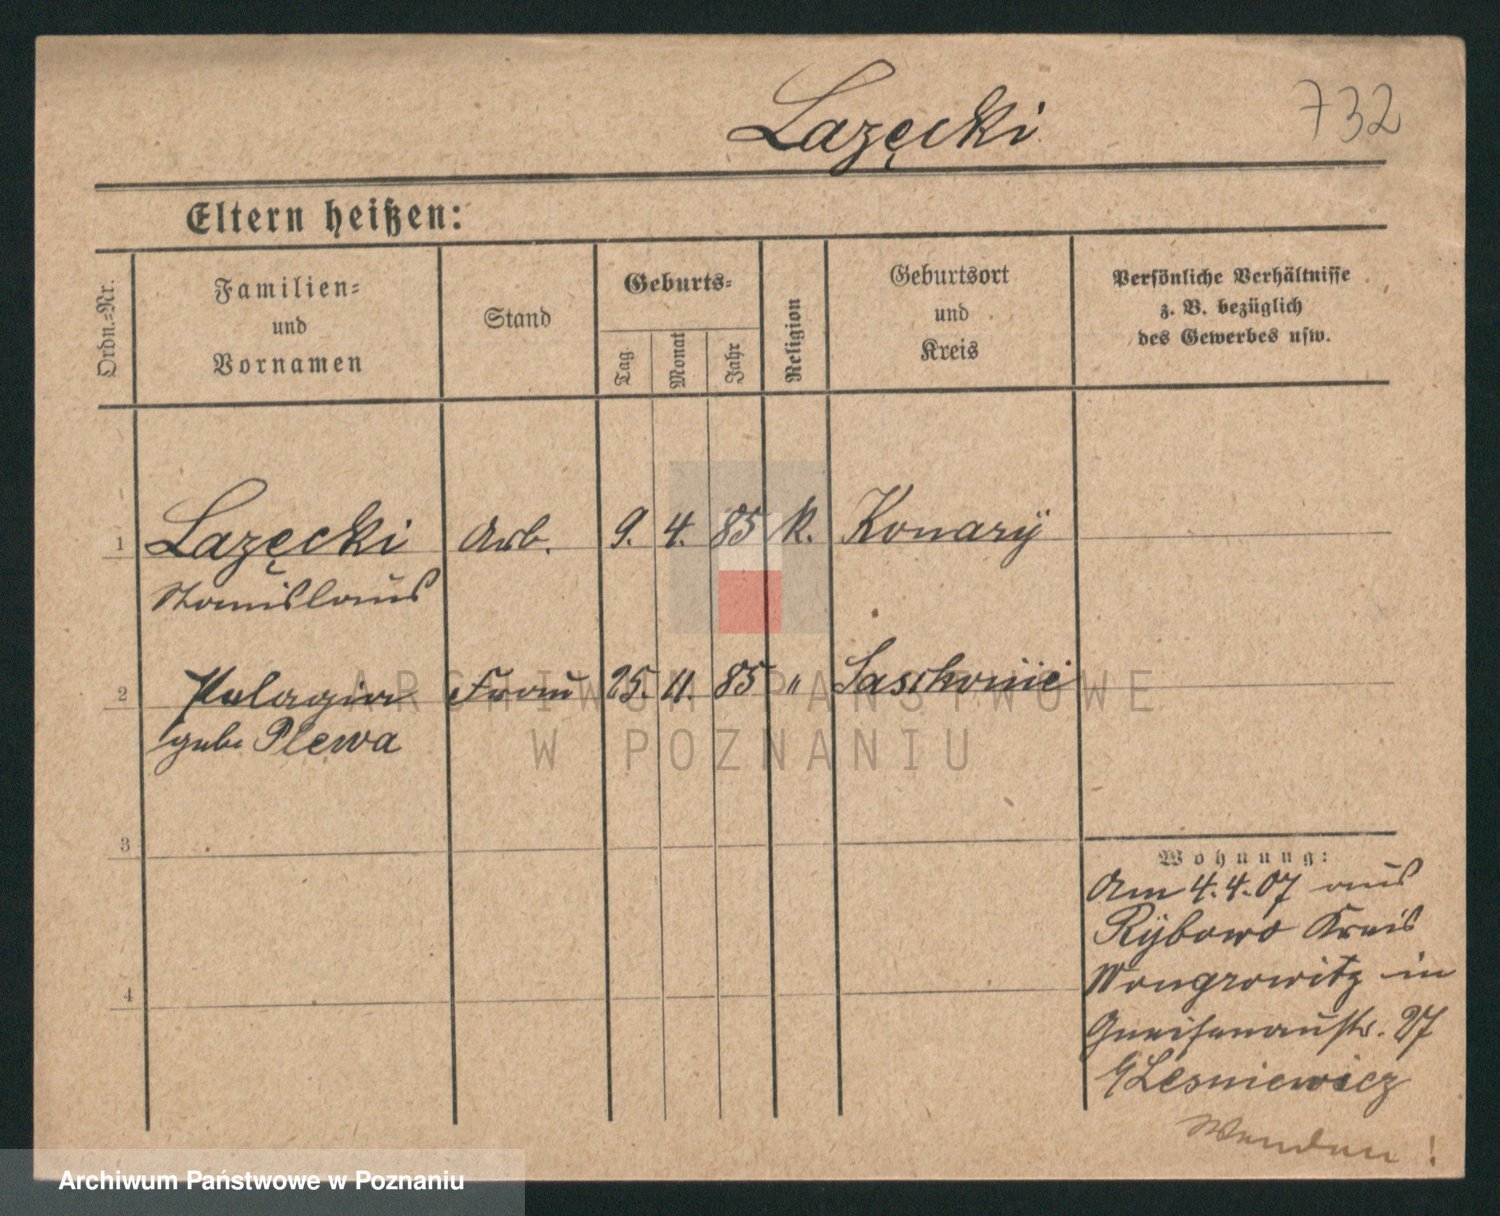 Lazęcki
732
Eltern heißen:
Ordn.=Nr.
Familien=
und
Vornamen
Stand
Geburts=
Tag
Monat
Jahr
Religion
Geburtsort
und
Kreis
Persönliche Verhältnisse
z. B. bezüglich
des Gewerbes usw.
1 Lazęcki Arb. 9. 4. 85 k. Konarÿ
Stanislaus
2 Pelagia Frau 25. 11. 85 "
geb. Plewa
3
4
Wohnung:
Am 4.4.07 aus
Rÿbowo Kreis
Wongrowitz in
Gneisenaustr. 27
b/Lesniewicz
Wenden!
ARCHIWUM PAŃSTWOWE
W POZNANIU
Archiwum Państwowe w Poznaniu